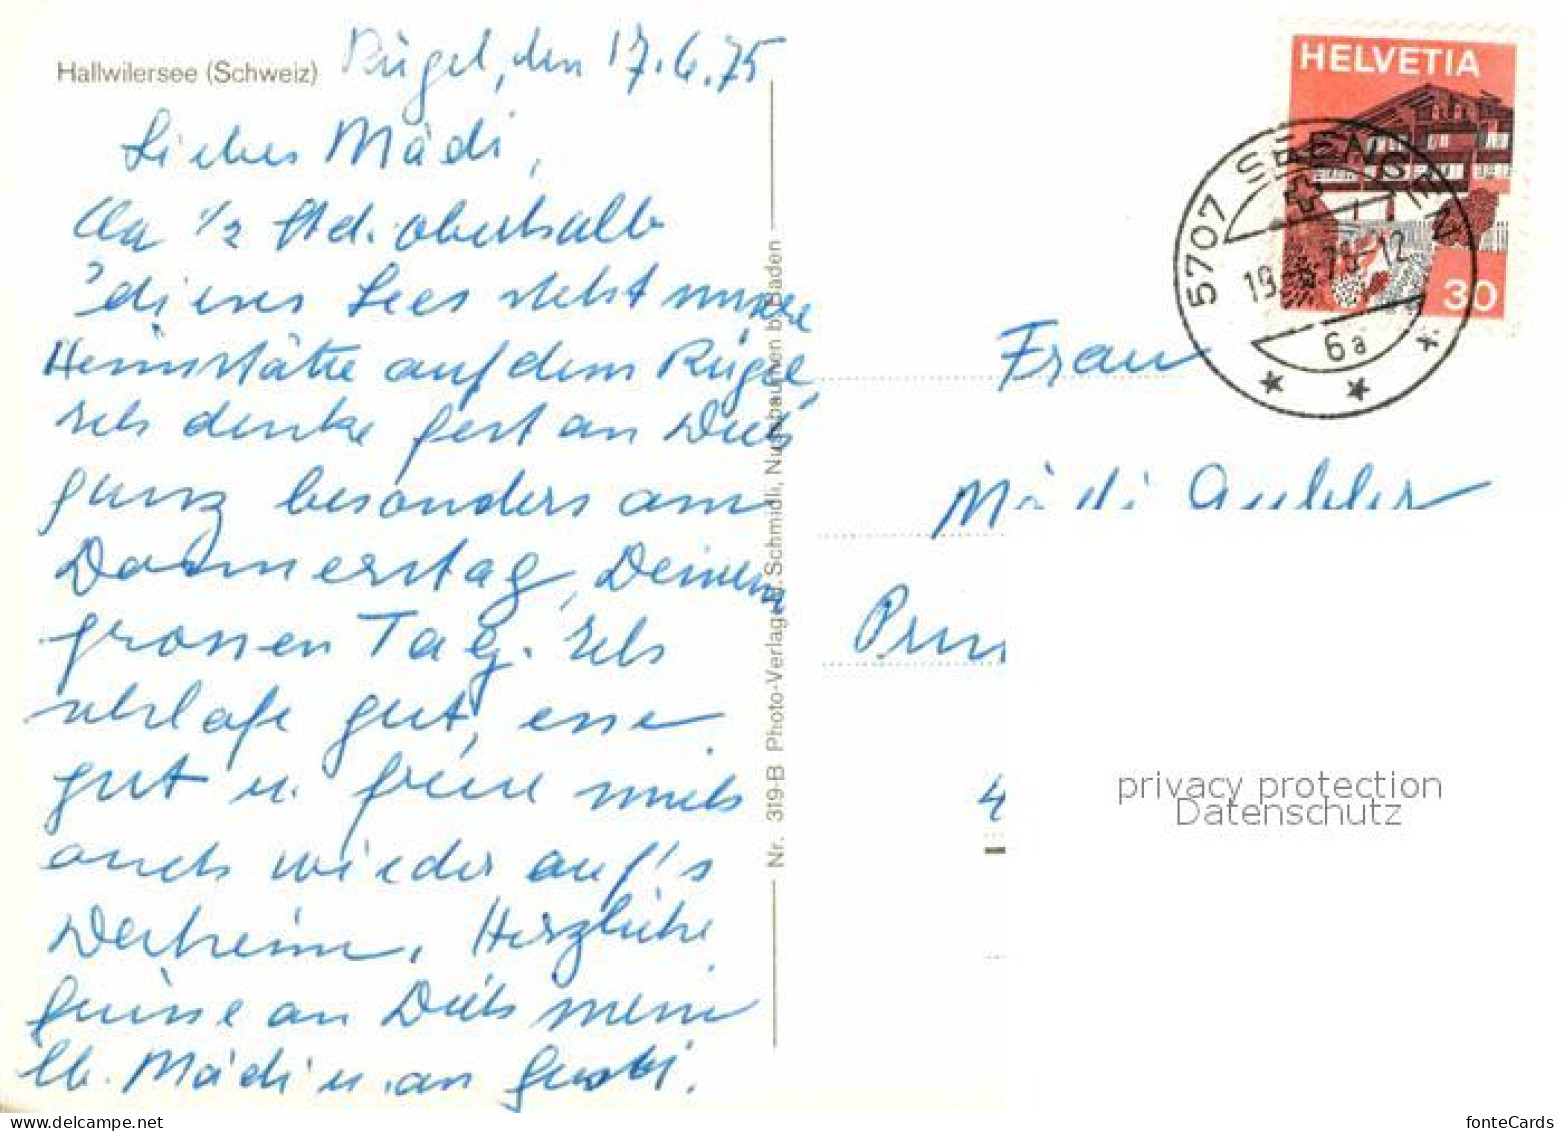 Hallwilersee (Schweiz)
Rügel, den 17.6.75
Liebes Mädi,
Ca 1/2 Std. oberhalb
dieses Sees steht unsere
Heimstätte auf dem Rügel,
Ich denke fest an Dich
ganz besonders am
Donnerstag, Deinem
grossen Tag. Ich
schlafe gut, esse
gut u. freue mich
auch wieder auf's
Daheim. Herzliche
Grüsse an Dich mein
lb. Mädi u. an Gusti.
Nr. 319-B Photo-Verlag Schmidli, Nussbaumen b. Baden
HELVETIA
30
5707 SEENGEN
19. 6. 75-12
6a
Frau
Mädi
4
privacy protection
Datenschutz
fonteCards